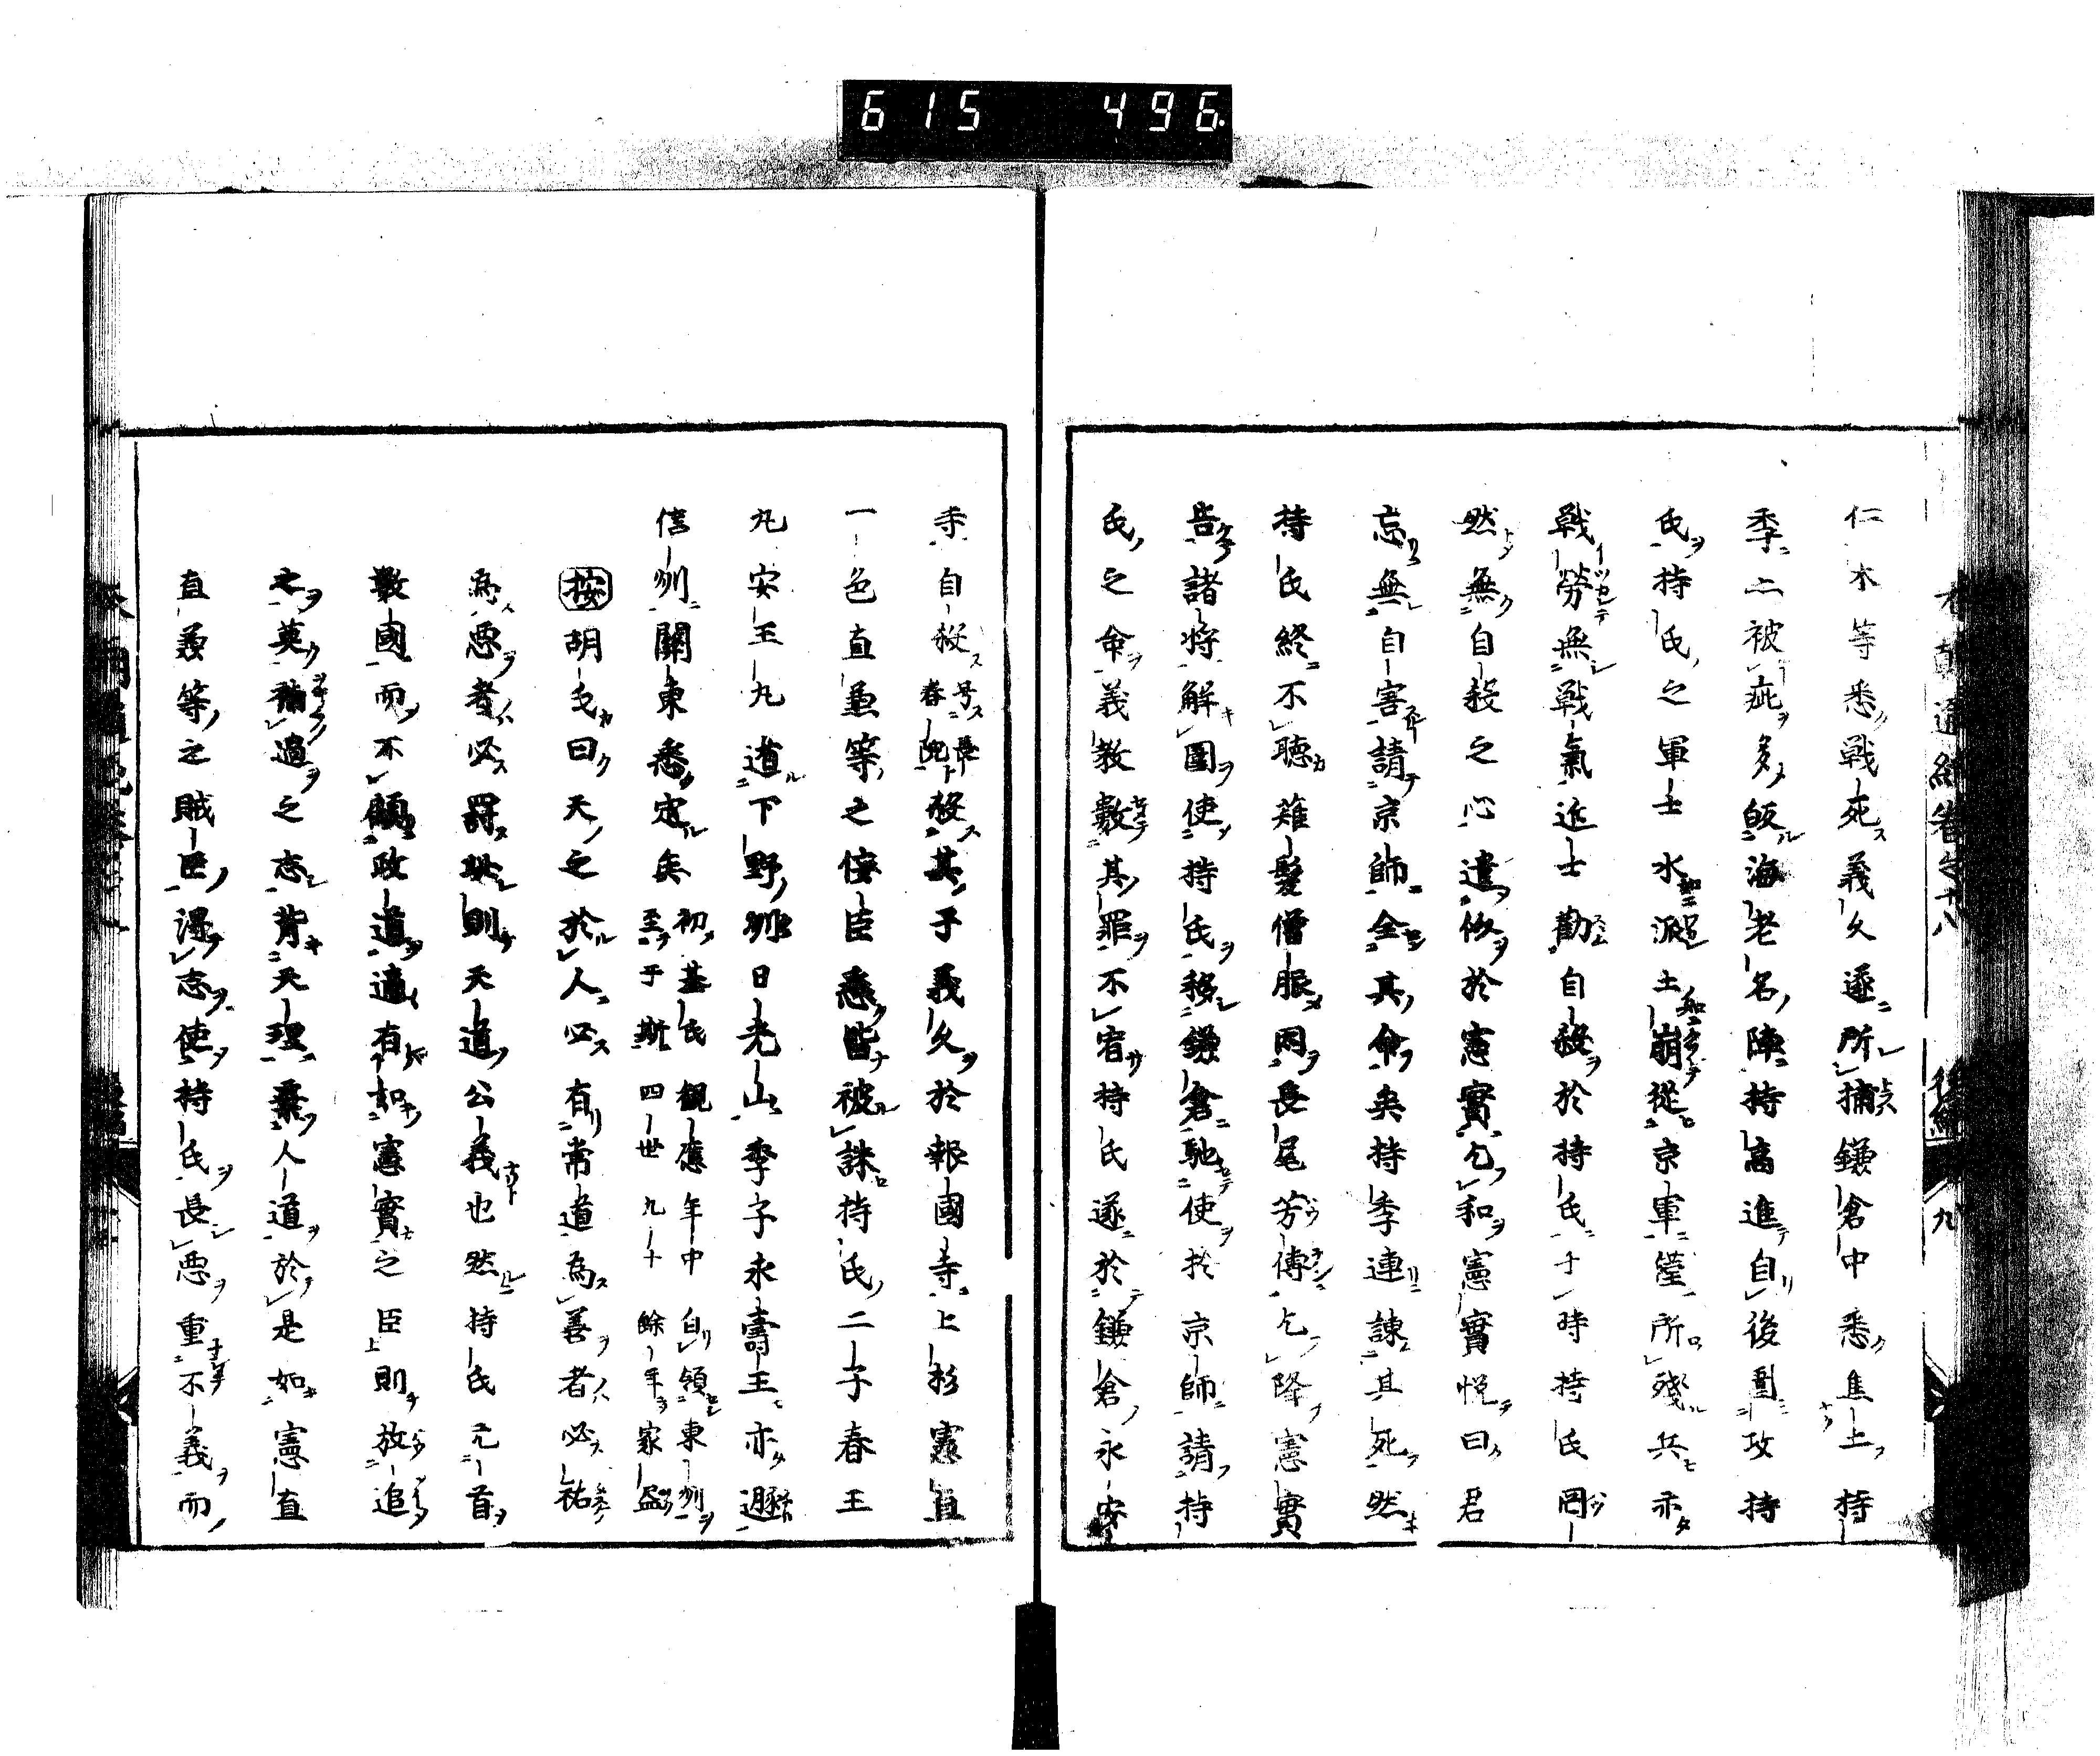 615 496.
仁木等悉戰死義久遂所捕鎌倉中悉焦土持
季二被疵多皈海老名陣持高進自後圍攻持
氏持氏之軍士水派土崩從京軍營所殘兵亦
戰勞無戰氣近士勸自殺於持氏于時持氏罔
然無自殺之心遣使於憲實乞和憲實悅曰君
忘無自害請京師全其命矣持季連諫其死然
持氏終不聽薙髮僧服因長尾芳傳乞降憲實
告諸將解圍使持氏移鎌倉馳使於京師請持
氏之命義教數其罪不宥持氏遂於鎌倉永安
寺自殺号長春院殺其子義久於報國寺上杉憲直
一色直兼等之侫臣悉皆被誅持氏二子春王
丸安王丸遁下野州日光山季子永壽王亦遁
信州關東悉定矣初基氏觀應年中自領東州至于斯四世九十餘年家盛
按胡氏曰天之於人必有常道為善者必祐
為惡者必罰耿則天道公義也然持氏元首
數國而不顧政道適有如憲實之臣則放追
之莫補過之志背天理棄人道於是如憲直
直兼等之賊臣得志使持氏長惡重不義而